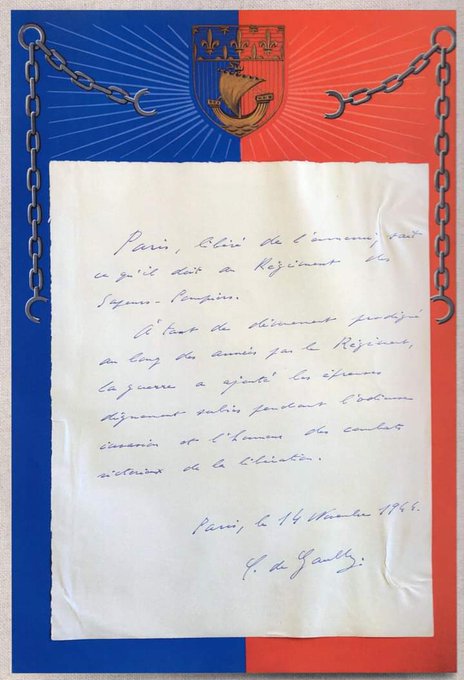 Paris, libéré de l'ennemi, sait
ce qu'il doit au Régiment des
Sapeurs-Pompiers.
À tant de dévouement prodigué
au long des années par le Régiment,
la guerre a ajouté les épreuves
dignement subies pendant l'odieuse
invasion et l'honneur des combats
victorieux de la libération.
Paris, le 14 Novembre 1944.
C. de Gaulle.